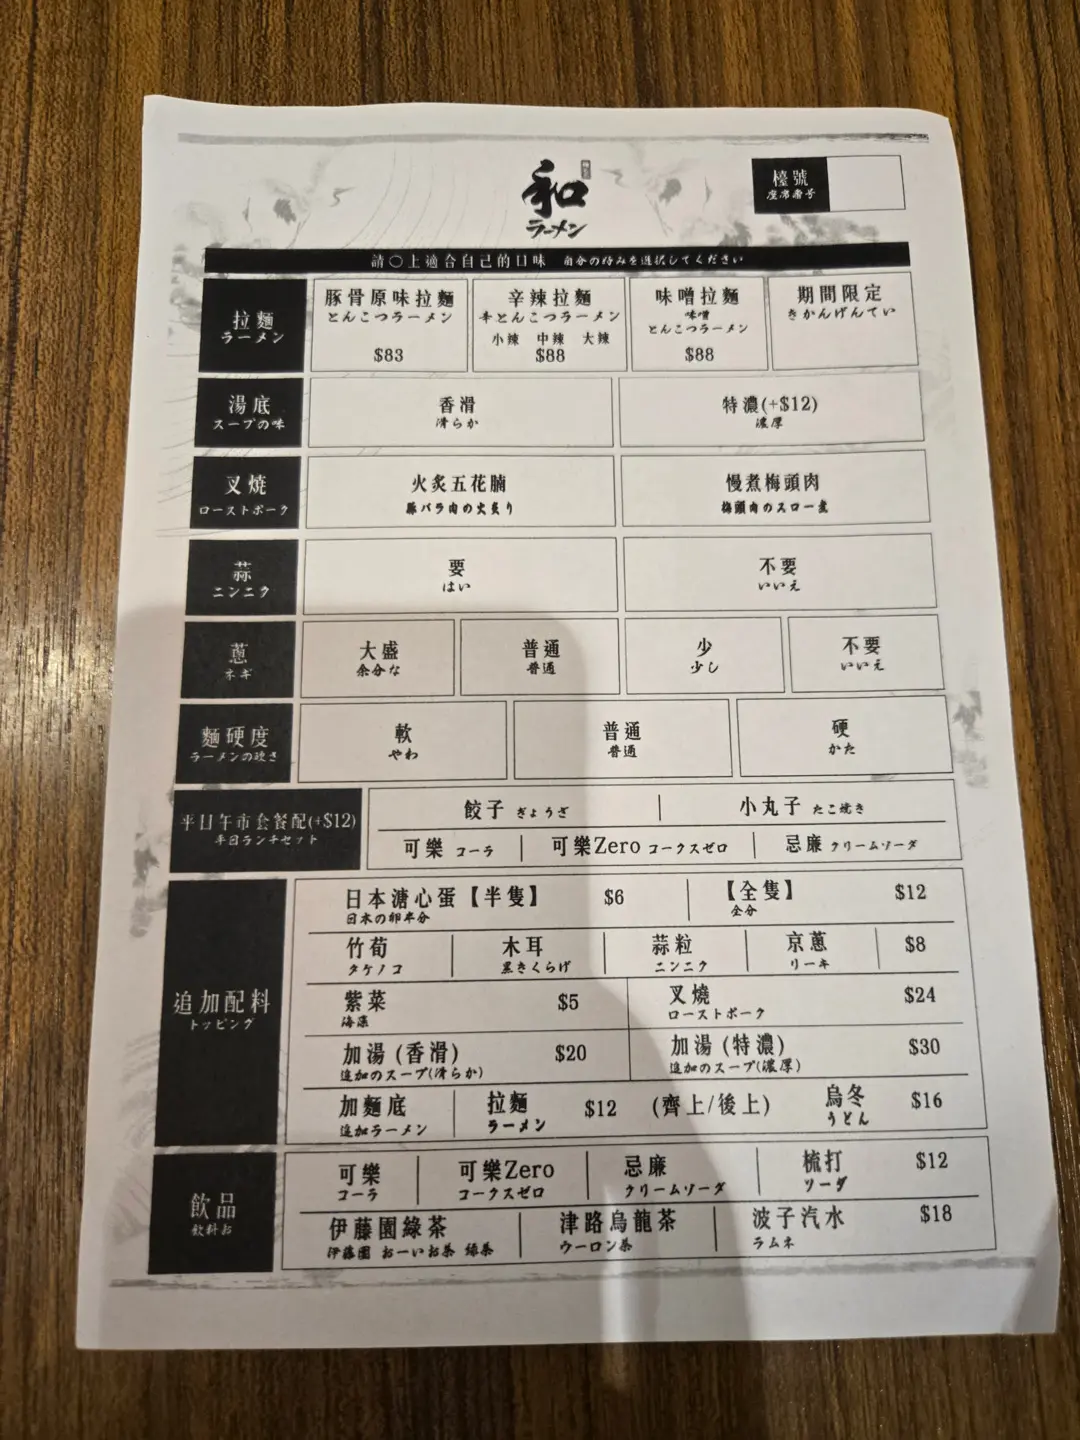 和
ラーメン
檯號
座席番号
請○上適合自己的口味 自分の好みを選択してください
拉麵
ラーメン
豚骨原味拉麵
とんこつラーメン
$83
辛辣拉麵
辛とんこつラーメン
小辣 中辣 大辣
$88
味噌拉麵
味噌
とんこつラーメン
$88
期間限定
きかんげんてい
湯底
スープの味
香滑
滑らか
特濃(+$12)
濃厚
叉燒
ローストポーク
火炙五花腩
豚バラ肉の火炙り
慢煮梅頭肉
梅頭肉のスロー煮
蒜
ニンニク
要
はい
不要
いいえ
蔥
ネギ
大盛
余分な
普通
普通
少
少し
不要
いいえ
麵硬度
ラーメンの硬さ
軟
やわ
普通
普通
硬
かた
平日午市套餐配(+$12)
平日ランチセット
餃子 ぎょうざ
小丸子 たこ焼き
可樂 コーラ
可樂Zero コークスゼロ
忌廉 クリームソーダ
追加配料
トッピング
日本溏心蛋【半隻】 $6
日本の卵半分
【全隻】 $12
全分
竹荀
タケノコ
木耳
黒きくらげ
蒜粒
ニンニク
京蔥
リーキ
$8
紫菜 $5
海藻
叉燒 $24
ローストポーク
加湯 (香滑) $20
追加のスープ(滑らか)
加湯 (特濃) $30
追加のスープ(濃厚)
加麵底
追加ラーメン
拉麵 $12 (齊上/後上)
ラーメン
烏冬 $16
うどん
飲品
飲料お
可樂
コーラ
可樂Zero
コークスゼロ
忌廉
クリームソーダ
梳打 $12
ソーダ
伊藤園綠茶
伊藤園 おーいお茶 緑茶
津路烏龍茶
ウーロン茶
波子汽水 $18
ラムネ